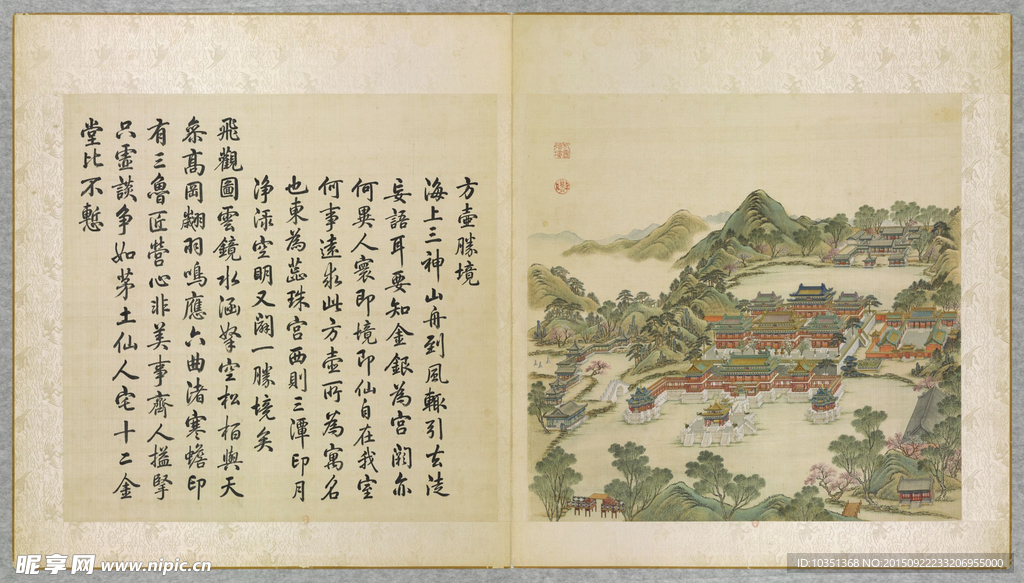 方壺勝境
海上三神山舟到風輒引去徒
妄語耳要知金銀為宮闕亦
何異人寰即境即仙自在我室
何事遠求此方壺所為寓名
也東為蕊珠宮西則三潭印月
淨淥空明又闢一勝境矣
飛觀圖雲鏡水涵拏空松柏與天
參高岡翽羽鳴應六曲渚寒蟾印
有三魯匠營心非美事齊人搤掔
只虛談爭如茅土仙人宅十二金
堂比不慙
昵享网 www.nipic.cn
ID:10351368 NO:20150922233206955000